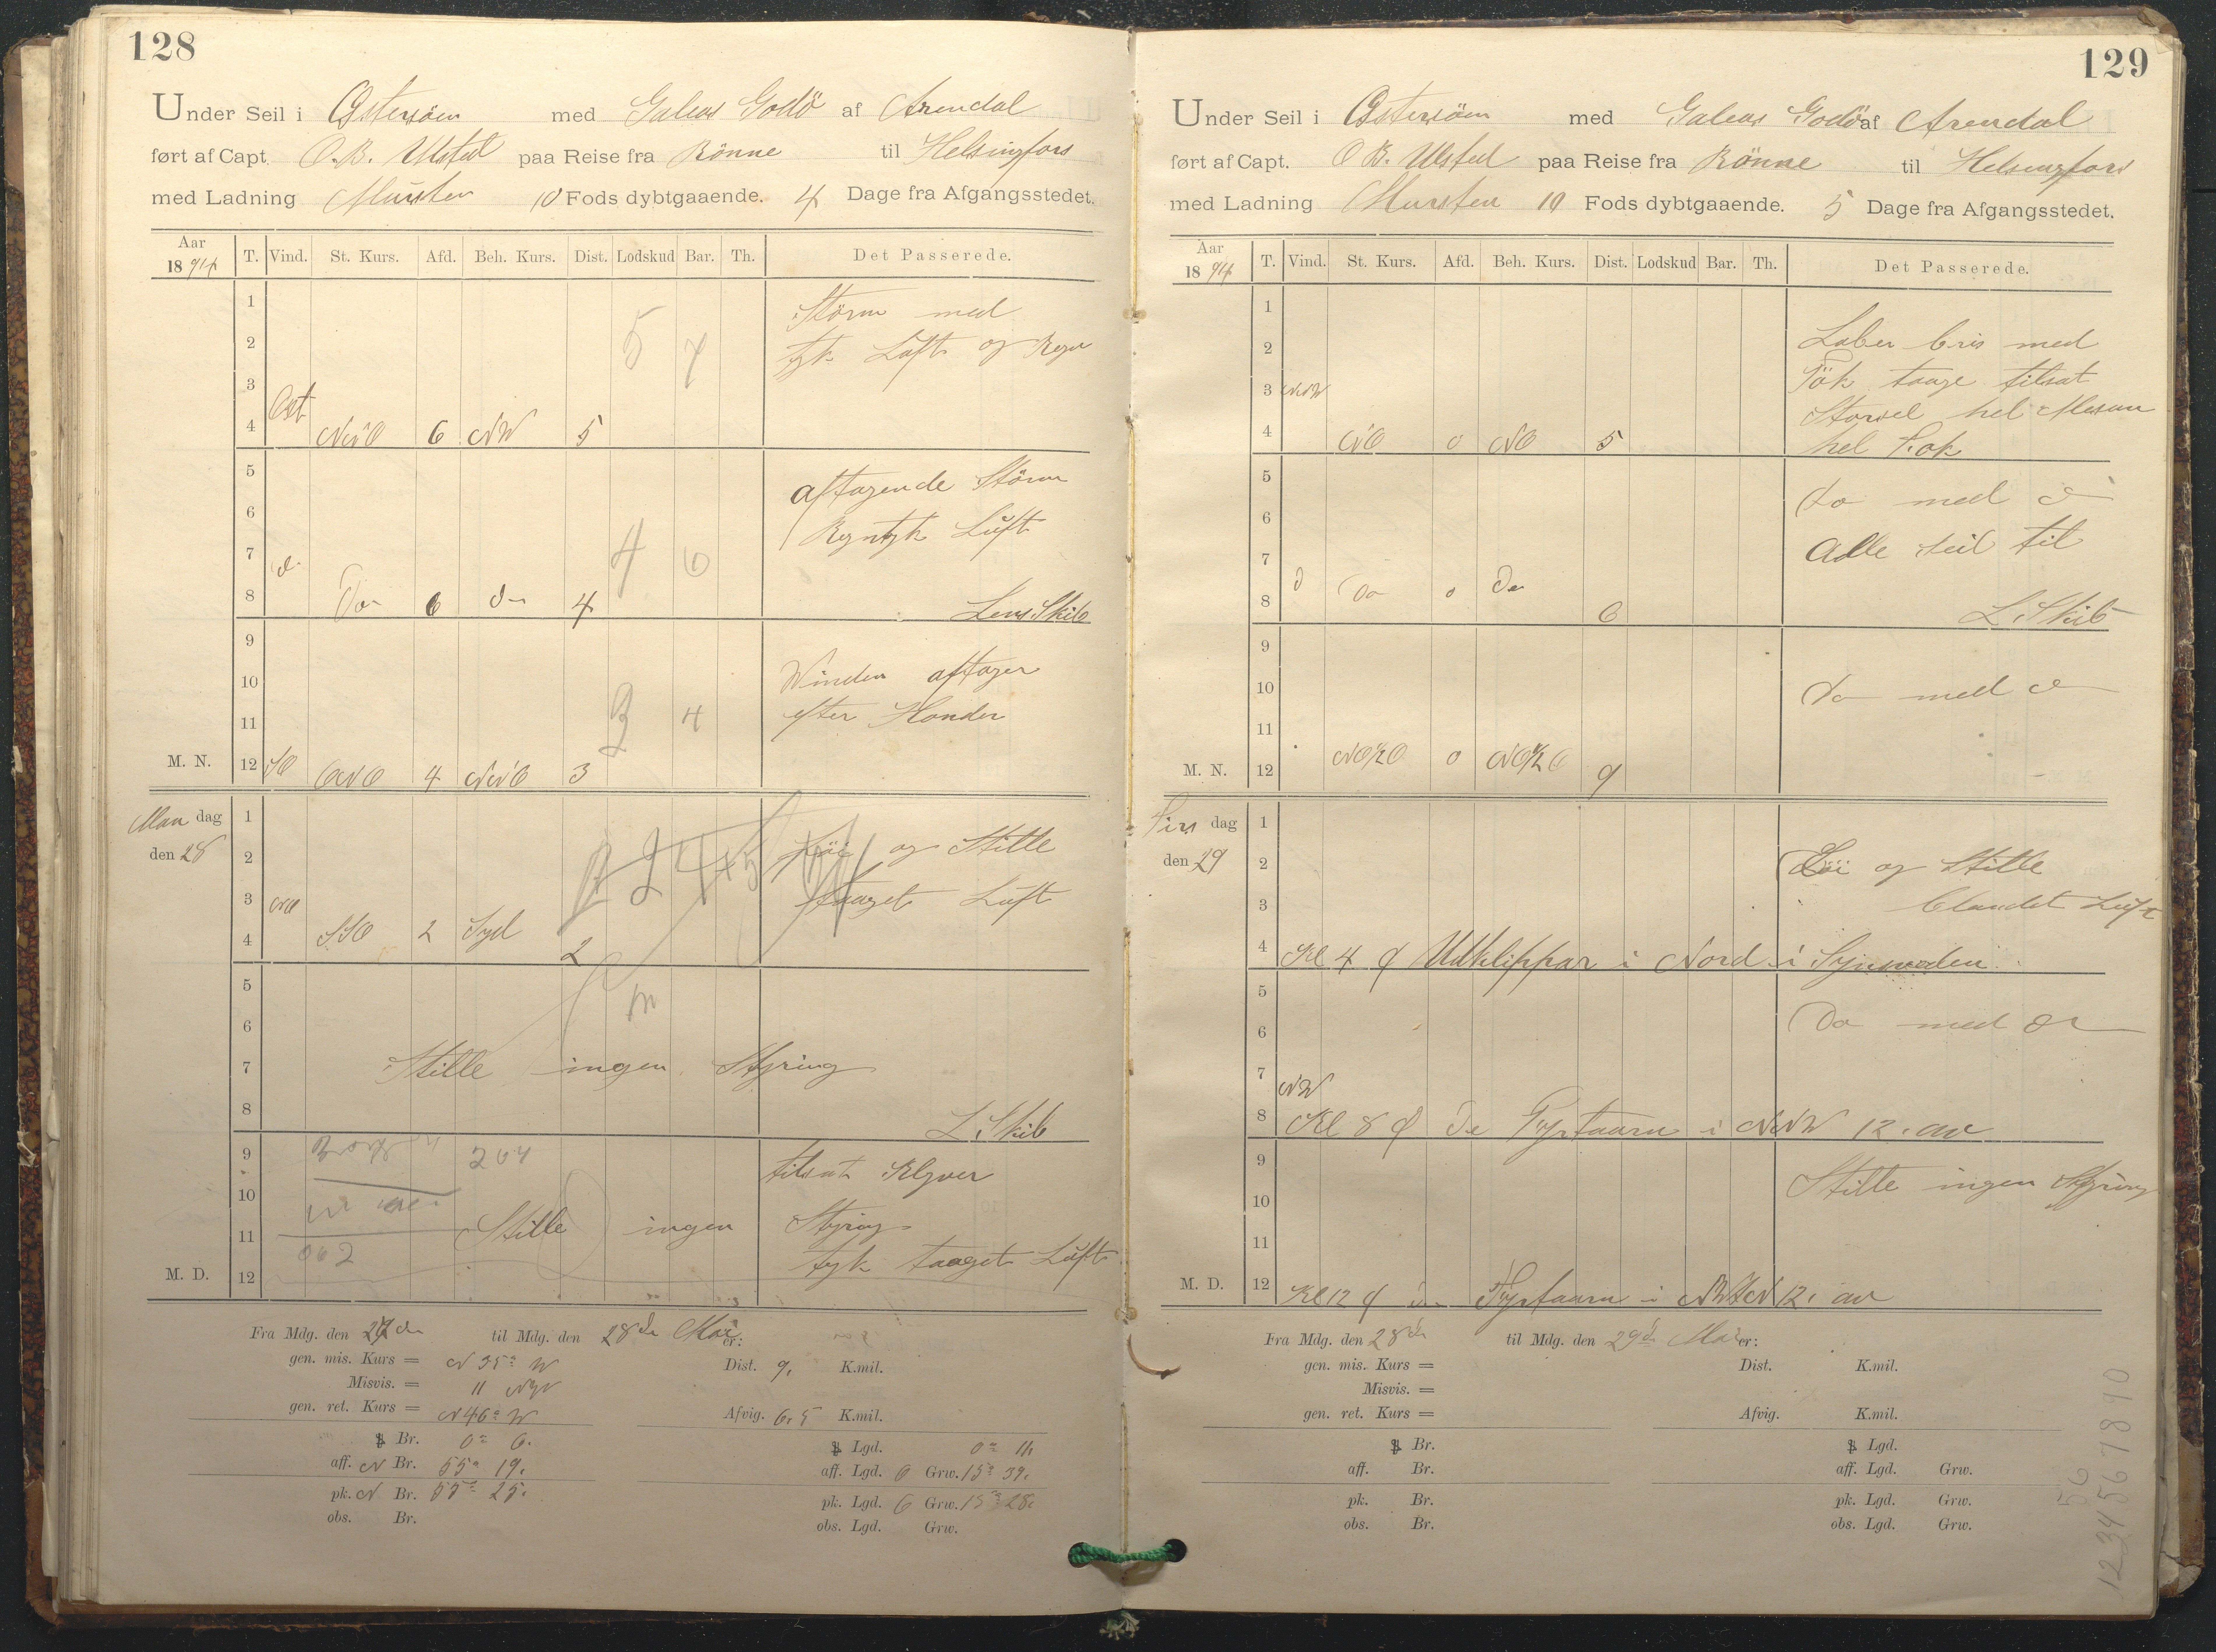 128
Under Seil i Østersöen med Galeas Godö af Arendal
ført af Capt. O. B. Ulsted paa Reise fra Rönne til Helsingfors
med Ladning Mursten 10 Fods dybtgaaende. 4 Dage fra Afgangsstedet.
Aar 1894 T. Vind. St. Kurs. Afd. Beh. Kurs. Dist. Lodskud Bar. Th. Det Passerede.
1 Störm med
2 5 7 tyk Luft og Regn
3 Ost
4 NNO 6 NW 5
5 aftagende Störm
6 Regntyk Luft
7 d 4 6
8 Do 6 do 4 Lens Skib
9
10 Winden aftager
11 3 4 efter Haanden
M. N. 12 SO ONO 4 NNO 3
Man dag 1
den 28 2 Löi og Stille
3 taaget Luft
4 SSO 2 Syd 2
5
6
7 Stille ingen Styring
8 L. Skib
9 264 tilsat Klyver
10
11 Stille ingen Styring
062
M. D. 12 tyk taaget Luft
Fra Mdg. den 27de til Mdg. den 28de Mai er:
gen. mis. Kurs = N 35° W Dist. 9, K.mil.
Misvis. = 11
gen. ret. Kurs = N 46° W Afvig. 6,5 K.mil.
Br. 0° 6, Lgd. 0° 11,
aff. N Br. 55° 19, aff. Lgd. O Grw. 15° 39,
pk. N. Br. 55° 25, pk. Lgd. O Grw. 15° 28,
obs. Br. obs. Lgd. Grw.
129
Under Seil i Østersöen med Galeas Godö af Arendal
ført af Capt. O B. Ulsted paa Reise fra Rönne til Helsingfors
med Ladning Mursten 10 Fods dybtgaaende. 5 Dage fra Afgangsstedet.
Aar 1894 T. Vind. St. Kurs. Afd. Beh. Kurs. Dist. Lodskud Bar. Th. Det Passerede.
1
2 Laber bris med
3 NNW Tök taage tilsat
Storseil hel Mesan
4 NO 0 NO 5 hel Fok
5 do med do
6
7 Alle seil til
8 d Do 0 Do 6 L. Skib
9
10 do med do
11
M. N. 12 NO½O 0 NO½O 9
Tirs dag 1
den 29 2 Löi og Stille
3 blandet Luft
4 Kl 4 Utklippar i Nord i Synsraden
5
6 Do med do
7 NW
8 Kl 8 Fyrtaarn i NNW 12, av
9
10 Stille ingen Styring
11
M. D. 12 Kl 12 Fyrtaarn i 12, av
Fra Mdg. den 28de til Mdg. den 29de Mai er:
gen. mis. Kurs = Dist. K.mil.
Misvis. =
gen. ret. Kurs = Afvig. K.mil.
Br. Lgd.
aff. Br. aff. Lgd. Grw.
pk. Br. pk. Lgd. Grw.
obs. Br. obs. Lgd. Grw.
56
1234567890